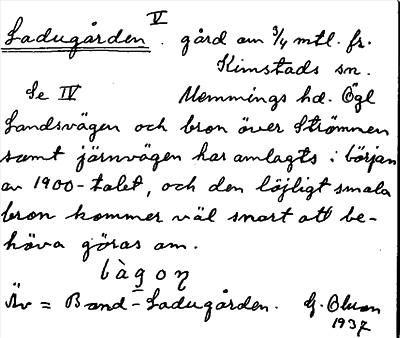 V
Ladugården. gård om 3/4 mtl. fr.
Kimstads sn.
Se IV Memmings hd. Ögl
Landsvägen och bron över Strömmen
samt järnvägen har anlagts i början
av 1900-talet, och den löjligt smala
bron kommer väl snart att be-
höva göras om.
làgoŋ
Äv = Band-Ladugården. G. Olson
1937